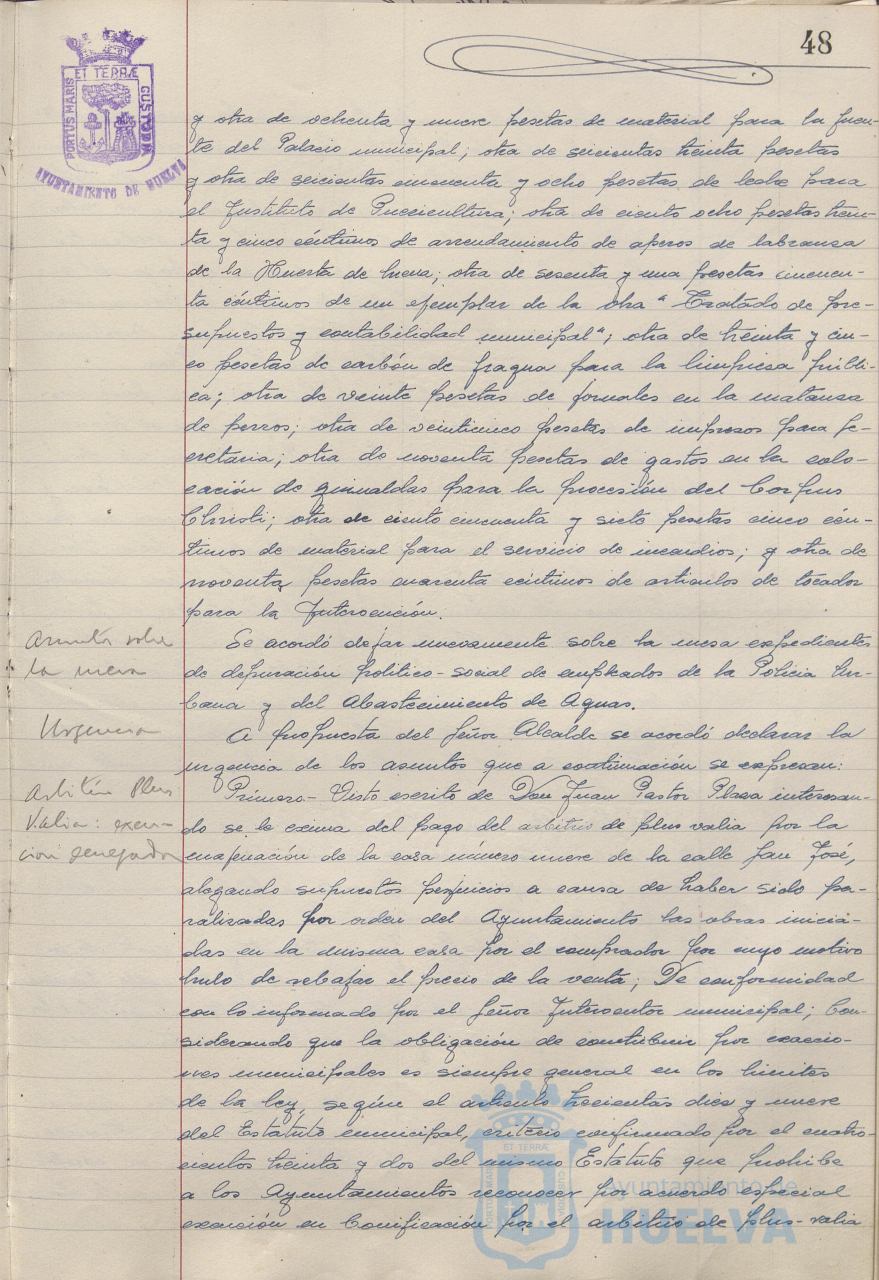 48
ET TERRÆ
PORTUS MARIS
CUSTODIA
AYUNTAMIENTO DE HUELVA
y otra de ochenta y nueve pesetas de material para la fuen-
te del Palacio municipal; otra de seicientas treinta pesetas
y otra de seicientas cincuenta y ocho pesetas de leche para
el Instituto de Puericultura; otra de ciento ocho pesetas trein-
ta y cinco céntimos de arrendamiento de aperos de labransa
de la Huerta de Mena; otra de sesenta y una pesetas cincuen-
ta céntimos de un ejemplar de la obra "Tratado de pre-
supuestos y contabilidad municipal"; otra de treinta y cin-
co pesetas de carbón de fragua para la limpiesa públi-
ca; otra de veinte pesetas de jornales en la matansa
de perros; otra de veinticinco pesetas de impresos para Se-
cretaria; otra de noventa pesetas de gastos en la colo-
cación de guirnaldas para la procesión del Corpus
Christi; otra de ciento cincuenta y siete pesetas cinco cén-
timos de material para el servicio de incendios; y otra de
noventa pesetas cuarenta centimos de articulos de tocador
para la Intervención.
Asunto sobre
la mesa
Se acordó dejar nuevamente sobre la mesa expedientes
de depuración politico-social de empleados de la Policia Ur-
bana y del Abastecimiento de Aguas.
Urgencia
A propuesta del Señor Alcalde se acordó declarar la
urgencia de los asuntos que a continuación se expresan:
Arbitrio Plus
Valia: exen-
cion denegada
Primero- Visto escrito de Don Juan Pastor Plasa interesan-
do se le exima del pago del arbitrio de plus valia por la
enajenación de la casa número nueve de la calle San José,
alegando supuestos perjuicios a causa de haber sido pa-
ralizadas por orden del Ayuntamiento las obras inicia-
das en la misma casa por el comprador por cuyo motivo
hubo de rebajar el precio de la venta; De conformidad
con lo informado por el Señor Interventor municipal; Con-
siderando que la obligación de contribuir por exaccio-
nes municipales es siempre general en los limites
de la ley, según el articulo trecientas dies y nueve
del Estatuto municipal, criterio confirmado por el cuatro-
cientos treinta y dos del mismo Estatuto que prohibe
a los Ayuntamientos reconocer por acuerdo especial
exención en bonificación por el arbitrio de plus-valia
ET TERRÆ
PORTUS MARIS
CUSTODIA
Ayuntamiento de
HUELVA